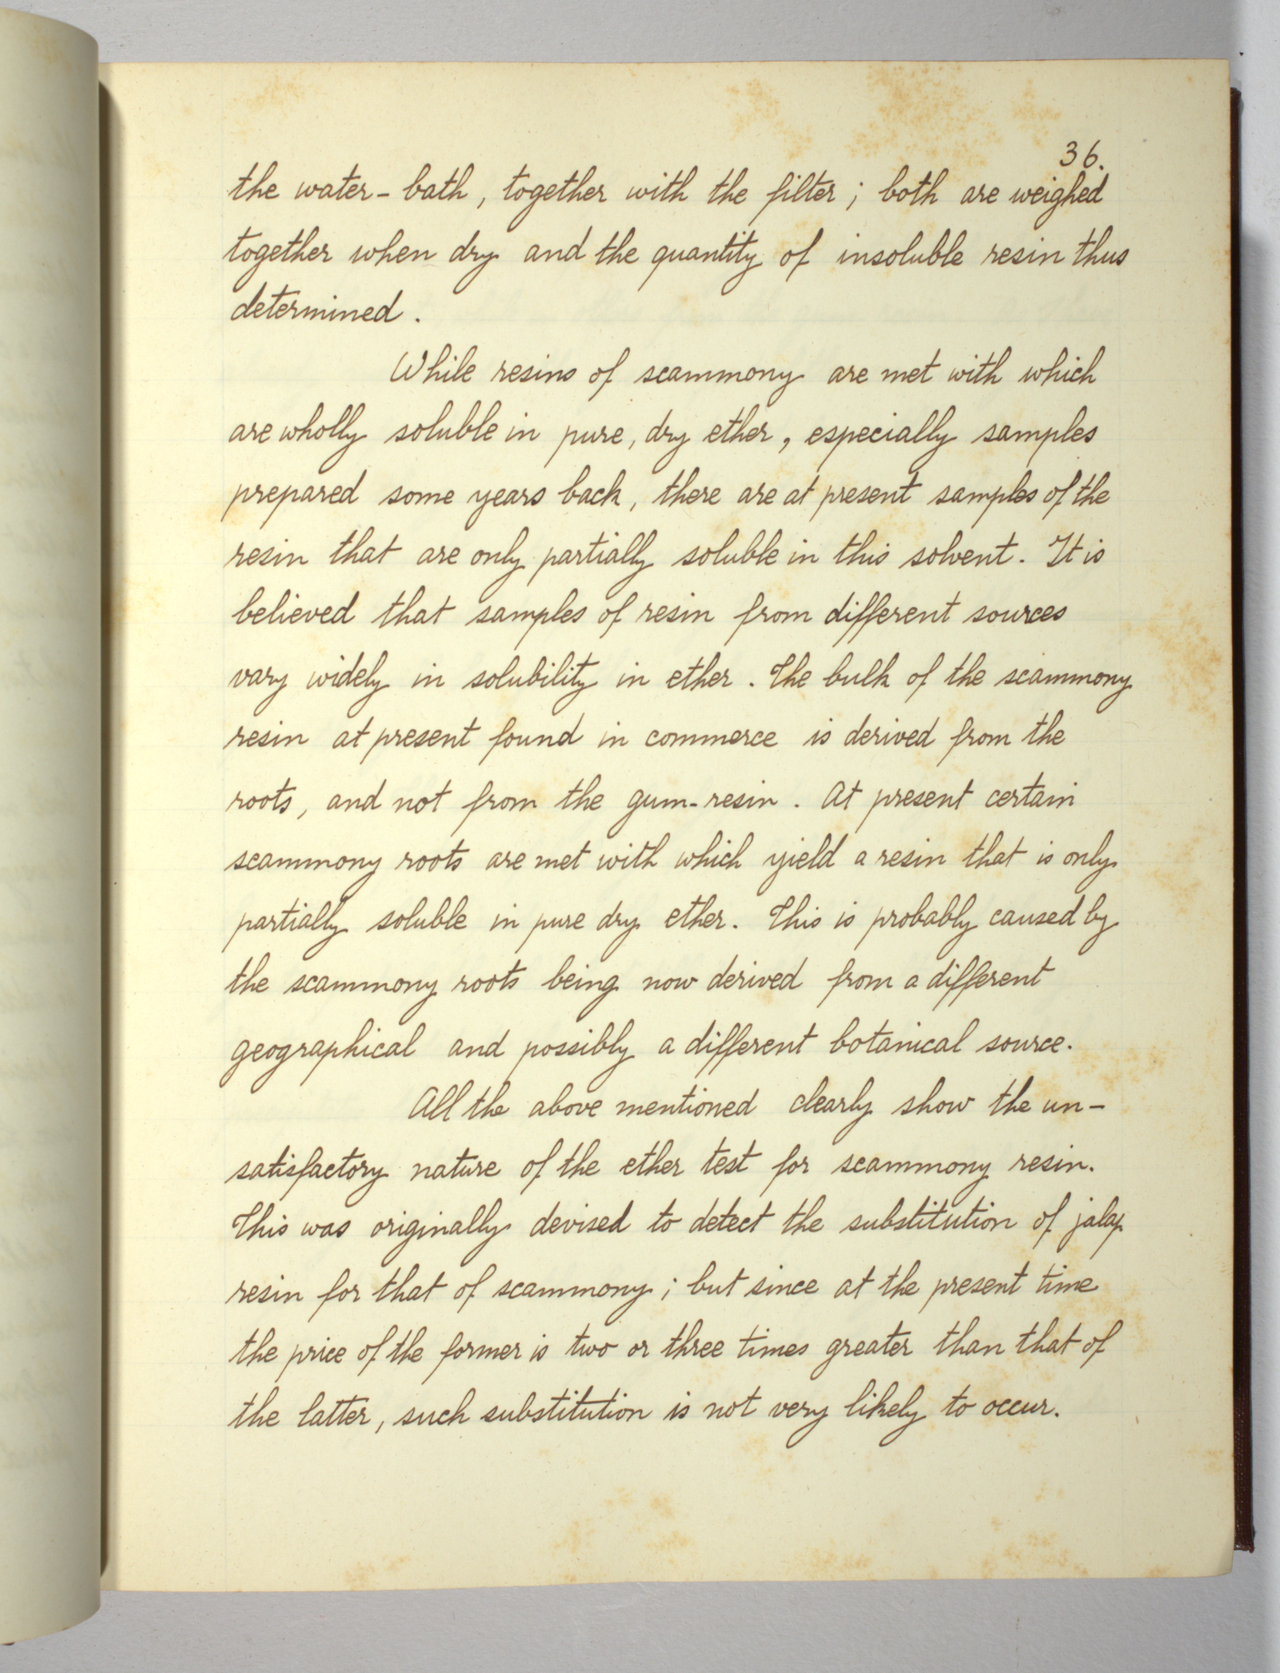 36.
the water-bath, together with the filter; both are weighed
together when dry and the quantity of insoluble resin thus
determined.
While resins of scammony are met with which
are wholly soluble in pure, dry ether, especially samples
prepared some years back, there are at present samples of the
resin that are only partially soluble in this solvent. It is
believed that samples of resin from different sources
vary widely in solubility in ether. The bulk of the scammony
resin at present found in commerce is derived from the
roots, and not from the gum-resin. At present certain
scammony roots are met with which yield a resin that is only
partially soluble in pure dry ether. This is probably caused by
the scammony roots being now derived from a different
geographical and possibly a different botanical source.
All the above mentioned clearly show the un-
satisfactory nature of the ether test for scammony resin.
This was originally devised to detect the substitution of jalap
resin for that of scammony; but since at the present time
the price of the former is two or three times greater than that of
the latter, such substitution is not very likely to occur.